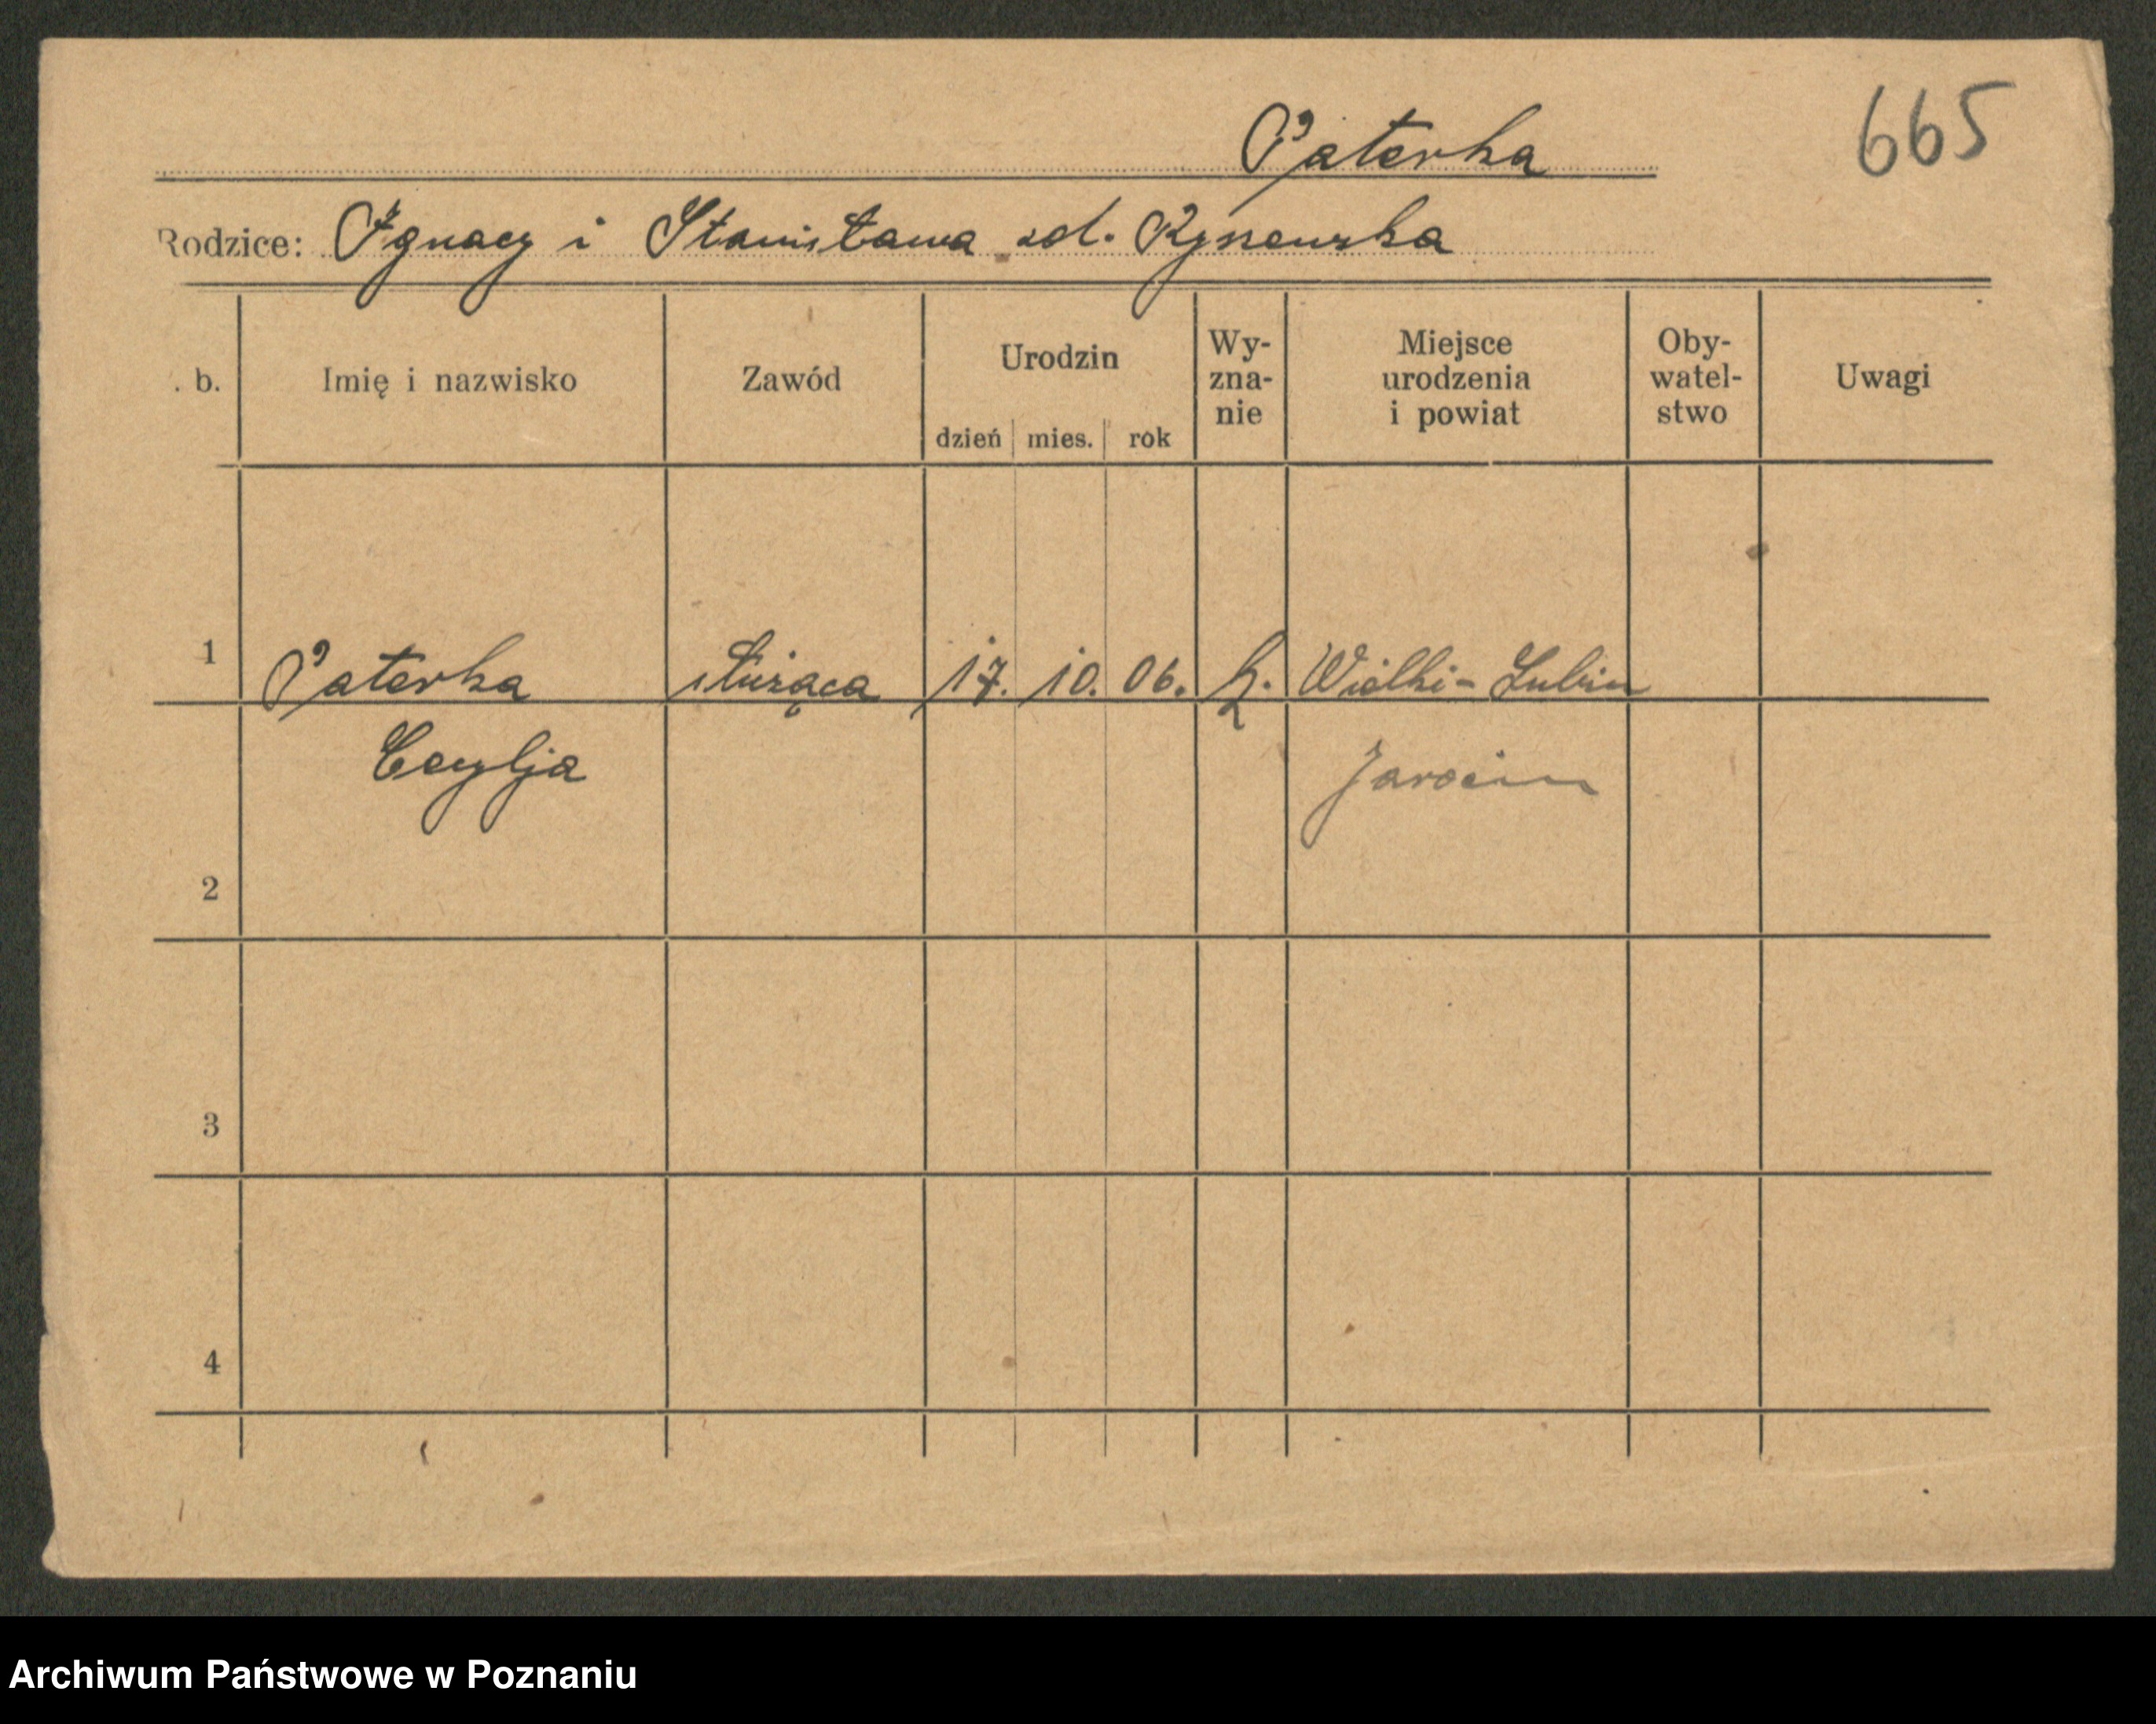 665
Paterka
Rodzice: Ignacy i Stanisława zd. Ryszewska
. b. Imię i nazwisko Zawód Urodzin dzień mies. rok Wy-zna-nie Miejsce urodzenia i powiat Oby-watel-stwo Uwagi
1 Paterka służąca 17. 10. 06. k. Wielki-Lubin
Cecylja Jarocin
2
3
4
Archiwum Państwowe w Poznaniu